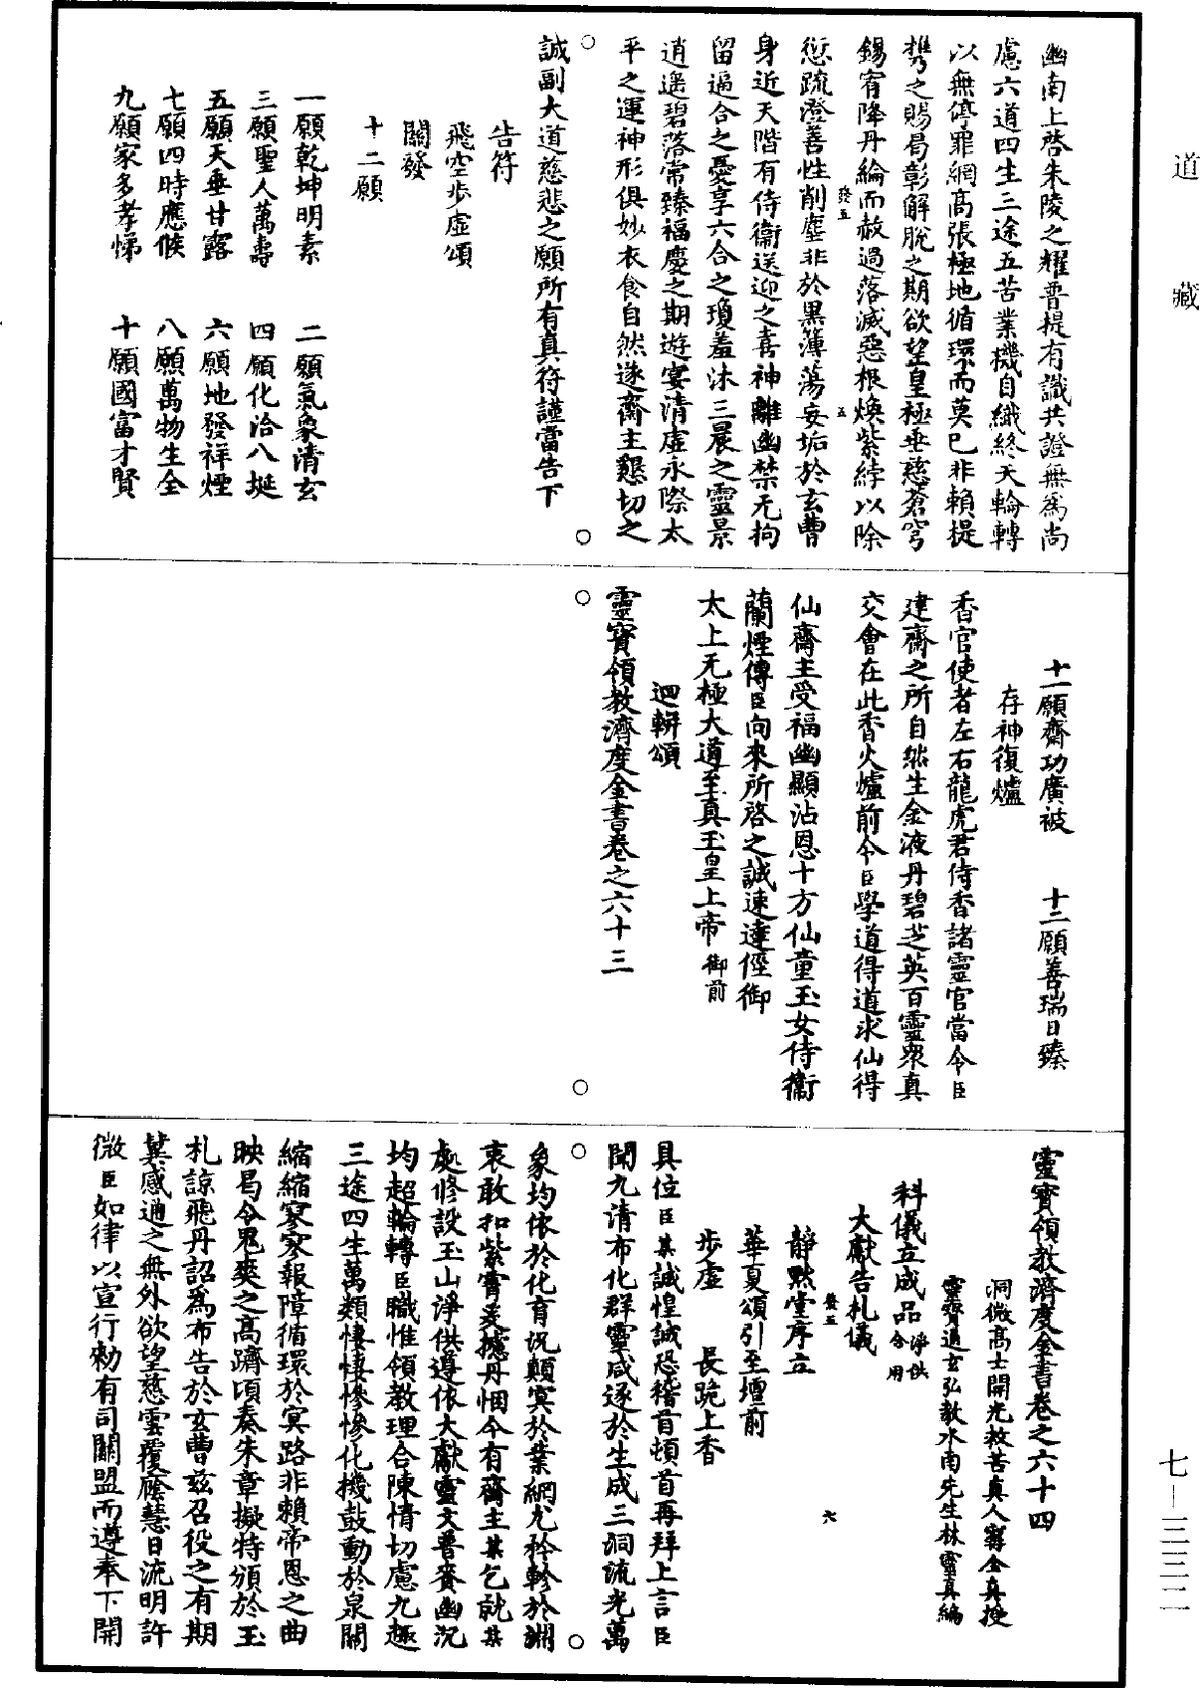 道藏
幽南上啓朱陵之耀普提有識共證無爲尚
慮六道四生三途五苦業機自織終天輪轉
以無停罪網高張極地循環而莫已非賴提
攜之賜曷彰解脫之期欲望皇極垂慈蒼穹
錫宥降丹綸而赦過落滅惡根煥紫綍以除
愆疏澄善性削塵非於黑簿蕩妄垢於玄曹
身近天階有侍衛送迎之喜神離幽禁无拘
留逼合之憂享六合之瓊羞沐三晨之靈景
逍遥碧落常臻福慶之期遊宴清虛永際太
平之運神形俱妙衣食自然遂齋主懇切之
誠副大道慈悲之願所有真符謹當告下
告符
飛空步虛頌
關發
十二願
一願乾坤明素 二願氣象清玄
三願聖人萬壽 四願化洽八埏
五願天垂甘露 六願地發祥煙
七願四時應候 八願萬物生全
九願家多孝悌 十願國富才賢
十一願齋功廣被 十二願善瑞日臻
存神復爐
香官使者左右龍虎君侍香諸靈官當令臣
建齋之所自然生金液丹碧芝英百靈衆真
交會在此香火爐前令臣學道得道求仙得
仙齋主受福幽顯沾恩十方仙童玉女侍衛
蘭煙傳臣向來所啓之誠速達徑御
太上无極大道至真玉皇上帝御前
迴軿頌
靈寶領教濟度金書卷之六十三
靈寶領教濟度金書卷之六十四
洞微高士開光救苦真人甯全真授
靈寶通玄弘教水南先生林靈真編
科儀立成品淨供合用
大獻告札儀
靜默堂序立
華夏頌引至壇前
步虛 長跪上香
具位臣某誠惶誠恐稽首頓首再拜上言臣
聞九清布化群靈咸遂於生成三洞流光萬
象均依於化育況顛冥於業網尤矜軫於淵
衷敢扣紫霄爰攄丹悃今有齋主某乞就某
處修設玉山淨供遵依大獻靈文普賚幽沉
均超輪轉臣職惟領教理合陳情切慮九趣
三途四生萬類悽悽慘慘化機鼓動於泉關
縮縮寥寥報障循環於冥路非賴帝恩之曲
映曷令鬼爽之高躋頃奏朱章擬特頒於玉
札諒飛丹詔爲布告於玄曹茲召役之有期
冀感通之無外欲望慈雲覆廕慧日流明許
微臣如律以宣行勑有司關盟而遵奉下開
七—三三二